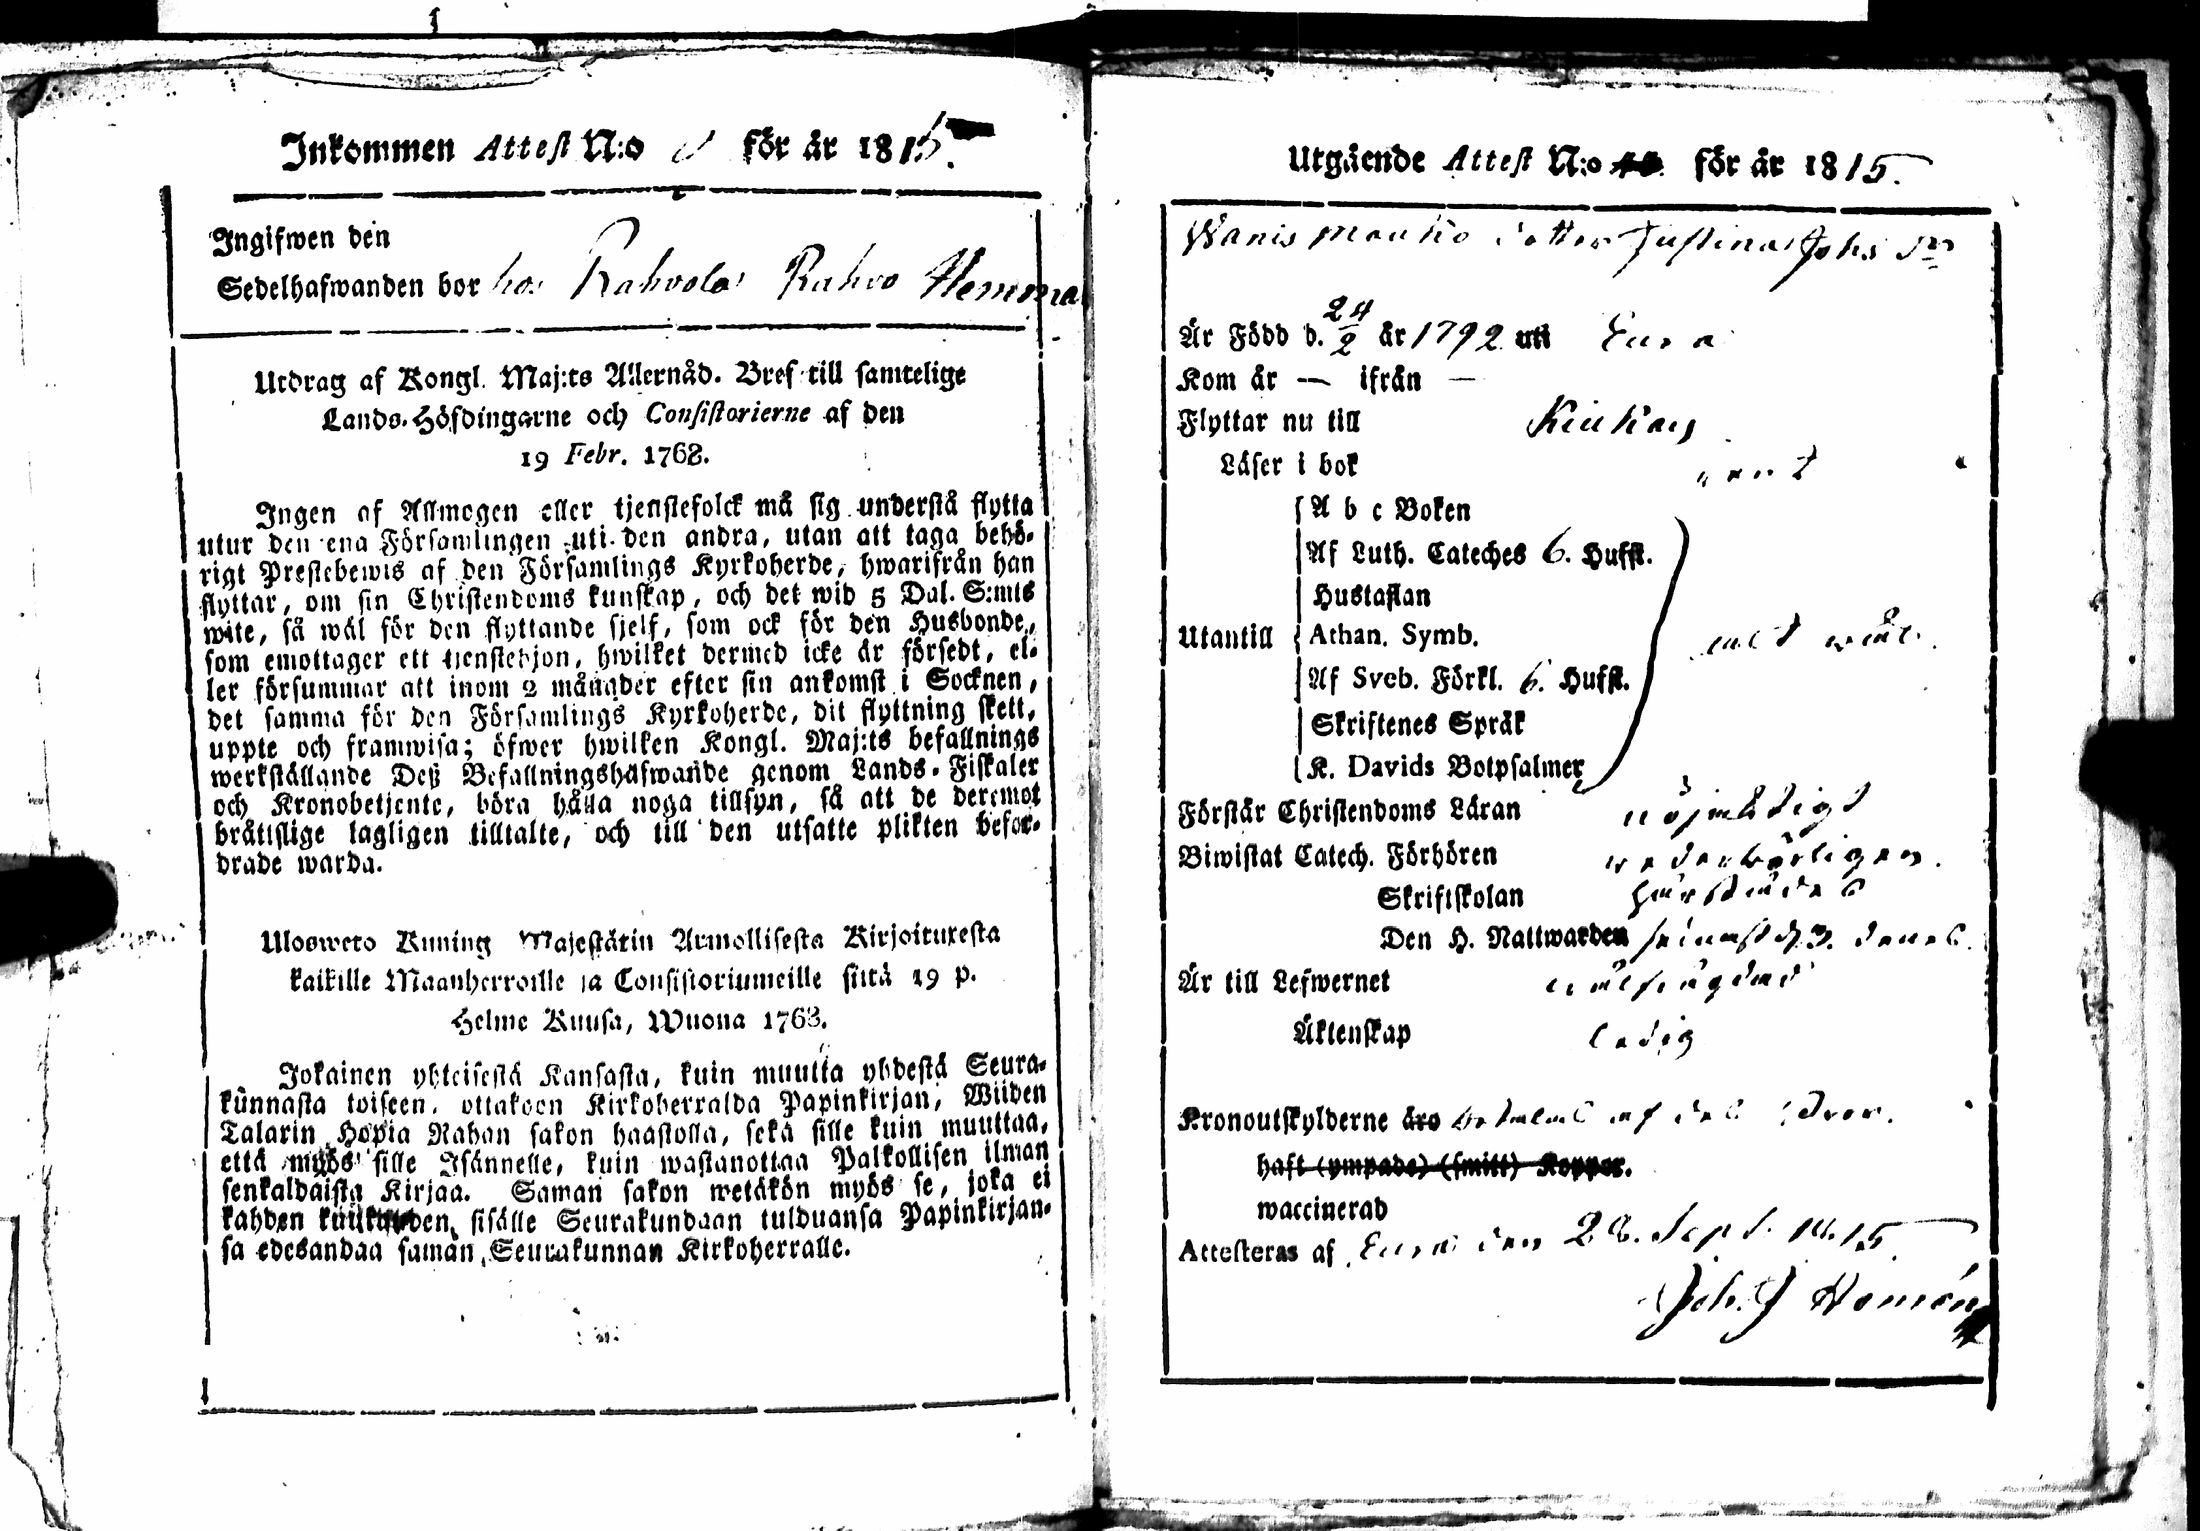 Inkommen Attest N:o för år 1815.
Ingifwen den
Sedelhafwanden bor hos Rahvola Rahvo Hemma
Utdrag af Kongl. Maj:ts Allernåd. Bref till samtelige
Lands-Höfdingarne och Consistorierne af den
19 Febr. 1768.
Ingen af Allmogen eller tjenstefolck må sig understå flytta
utur den ena Församlingen uti den andra, utan att taga behö-
rigt Prestebewis af den Församlings Kyrkoherde, hwarifrån han
flyttar, om sin Christendoms kunskap, och det wid 5 Dal. S:mts
wite, så wäl för den flyttande sjelf, som ock för den Husbonde,
som emottager ett tjenstehjon, hwilket dermed icke är försedt, el-
ler försummar att inom 2 månader efter sin ankomst i Socknen,
det samma för den Församlings Kyrkoherde, dit flyttning skett,
uppte och framwisa; öfwer hwilken Kongl. Maj:ts befallnings
werkställande Deß Befallningshafwande genom Lands-Fiskaler
och Kronobetjente, böra hålla noga tillsyn, så att de deremot
bråtislige lagligen tilltalte, och till den utsatte plikten befor-
drade warda.
Ulosweto Kuning Majestätin Armollisesta Kirjoituxesta
kaikille Maanherroille ja Consistoriumeille siitä 19 p.
Helme Kuusa, Wuona 1768.
Jokainen yhteisestä Kansasta, kuin muutta yhdestä Seura-
kunnasta toiseen, ottakoon Kirkoherralda Papinkirjan, Wiiden
Talarin Hopia Rahan sakon haastolla, sekä sille kuin muuttaa,
että myös sille Isännelle, kuin wastanottaa Palkollisen ilman
senkaldaista Kirjaa. Saman sakon wetäkön myös se, joka ei
kahden kuukauden sisälle Seurakundaan tulduansa Papinkirjan-
sa edesandaa saman Seurakunnan Kirkoherralle.
Utgående Attest N:o för år 1815.
Wanis mauko dotter Justina Johs dr
Är Född d. 24/2 år 1792 uti Eura
Kom år — ifrån —
Flyttar nu till Kiukais
Läser i bok rent
A b c Boken
Af Luth. Cateches 6. Hufst.
Hustaflan
Utantill Athan. Symb. allt wäl.
Af Sveb. Förkl. 6. Hufst.
Skriftenes Språk
K. Davids Botpsalmer
Förstår Christendoms Läran nöjaktigt
Biwistat Catech. Förhören wederbörligen.
Skriftskolan härstädes
Den H. Nattwarden
Är till Lefwernet wälfrägdad
Äktenskap ledig
Kronoutskylderne äro betalat af
haft (ympade) (smitt) Koppor.
waccinerad
Attesteras af Eura den 28. Sept. 1815.
Joh. J Homén